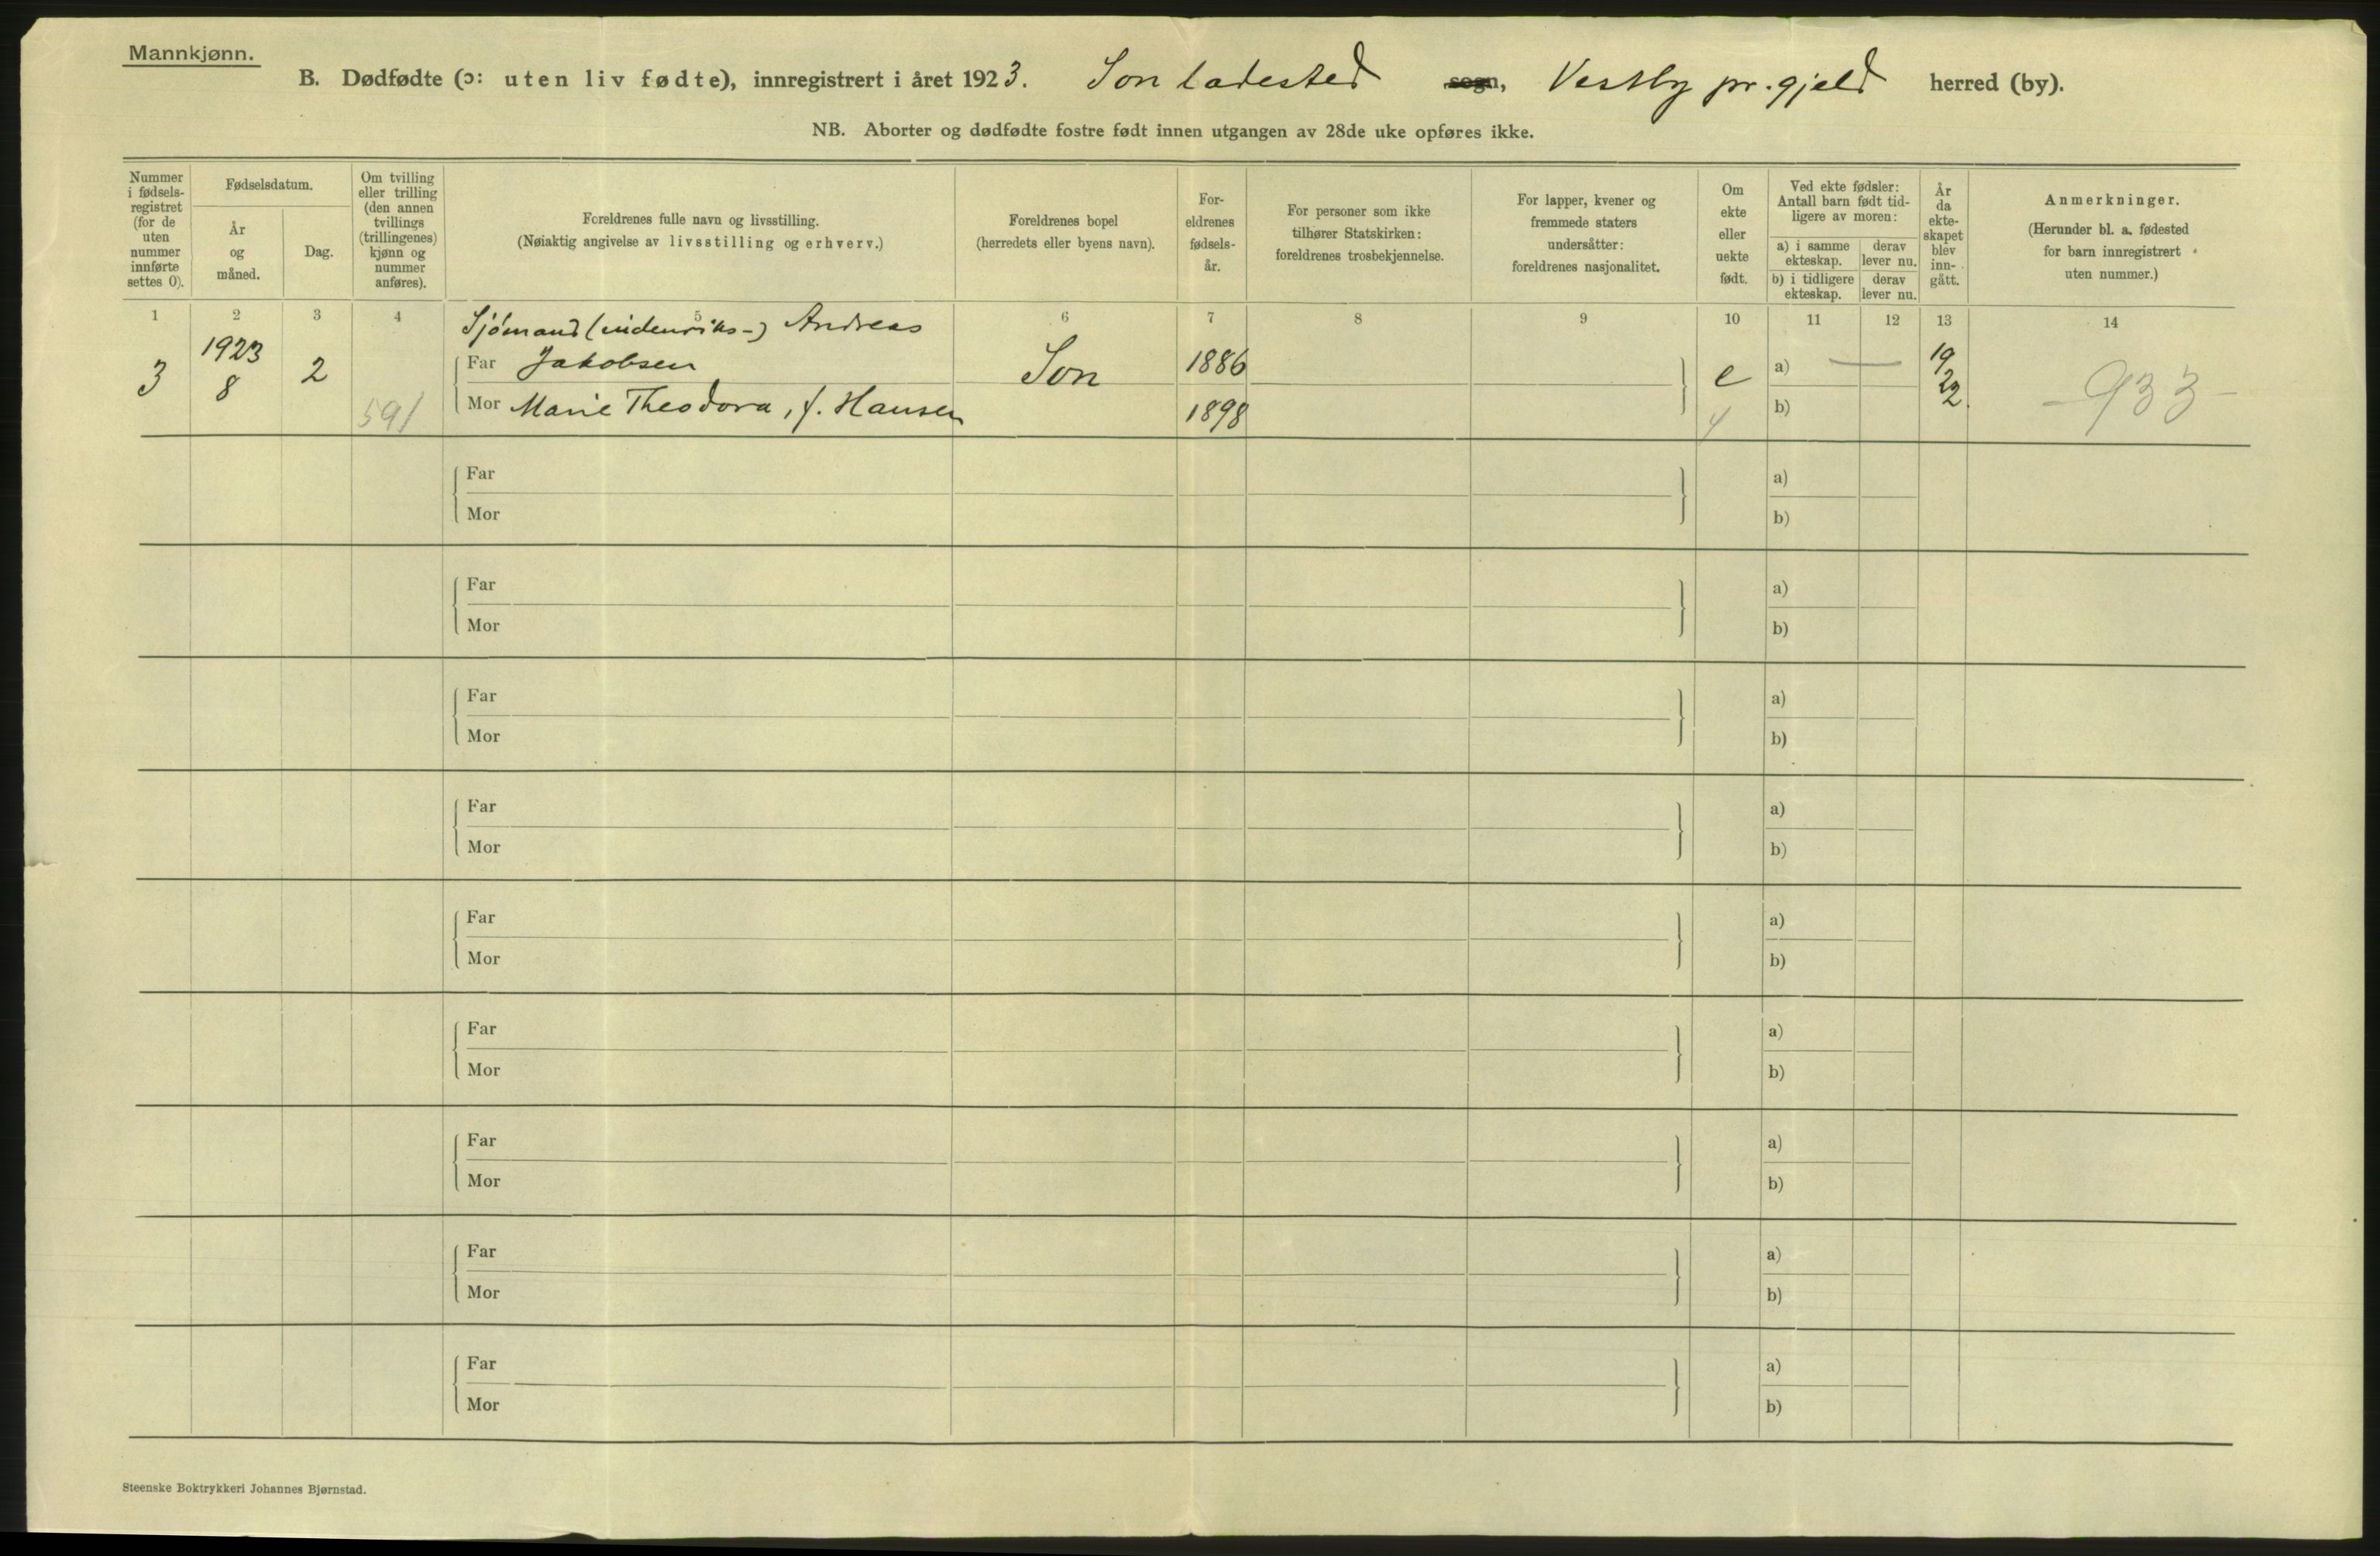 Mannkjønn.
B. Dødfødte (ɔ: uten liv fødte), innregistrert i året 1923. Son ladested sogn, Vestby pr.gjeld herred (by).
NB. Aborter og dødfødte fostre født innen utgangen av 28de uke opføres ikke.
Nummer
i fødsels-
registret
(for de
uten
nummer
innførte
settes 0).
Fødselsdatum.
År
og
måned.
Dag.
Om tvilling
eller trilling
(den annen
tvillings
(trillingenes)
kjønn og
nummer
anføres).
Foreldrenes fulle navn og livsstilling.
(Nøiaktig angivelse av livsstilling og erhverv.)
Foreldrenes bopel
(herredets eller byens navn).
For-
eldrenes
fødsels-
år.
For personer som ikke
tilhører Statskirken:
foreldrenes trosbekjennelse.
For lapper, kvener og
fremmede staters
undersåtter:
foreldrenes nasjonalitet.
Om
ekte
eller
uekte
født.
Ved ekte fødsler:
Antall barn født tid-
ligere av moren:
a) i samme
ekteskap.
derav
lever nu.
b) i tidligere
ekteskap.
derav
lever nu.
År
da
ekte-
skapet
blev
inn-
gått.
Anmerkninger.
(Herunder bl. a. fødested
for barn innregistrert
uten nummer.)
1 2 3 4 5 6 7 8 9 10 11 12 13 14
Sjömand (indenriks-) Andreas
3 1923 8 2 Far Jakobsen Son 1886 e a) — 19 22 - 933 -
591 Mor Marie Theodora, f. Hansen 1898 b)
Far a)
Mor b)
Far a)
Mor b)
Far a)
Mor b)
Far a)
Mor b)
Far a)
Mor b)
Far a)
Mor b)
Far a)
Mor b)
Far a)
Mor b)
Far a)
Mor b)
Steenske Boktrykkeri Johannes Bjørnstad.